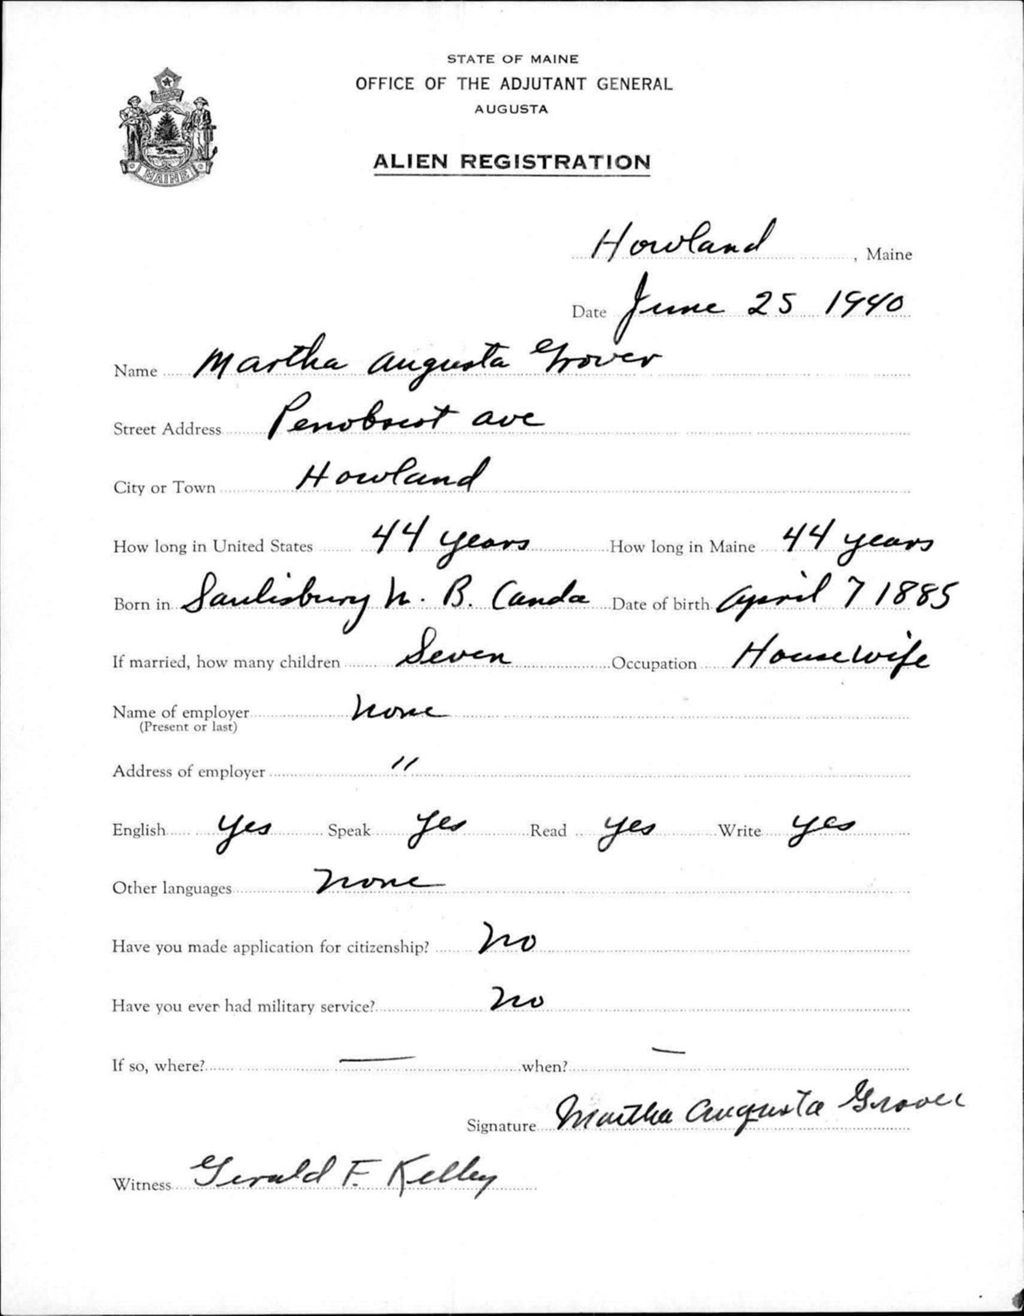 STATE OF MAINE
OFFICE OF THE ADJUTANT GENERAL
AUGUSTA
ALIEN REGISTRATION
MAINE
Howland, Maine
Date June 25 1940
Name Martha Augusta Grover
Street Address Penobscot ave
City or Town Howland
How long in United States 44 years How long in Maine 44 years
Born in Saulisbury N. B. Canda Date of birth April 7 1885
If married, how many children Seven Occupation Housewife
Name of employer none
(Present or last)
Address of employer "
English yes Speak yes Read yes Write yes
Other languages none
Have you made application for citizenship? No
Have you ever had military service? No
If so, where? — when? —
Signature Martha Augusta Grover
Witness Gerald F. Kelley